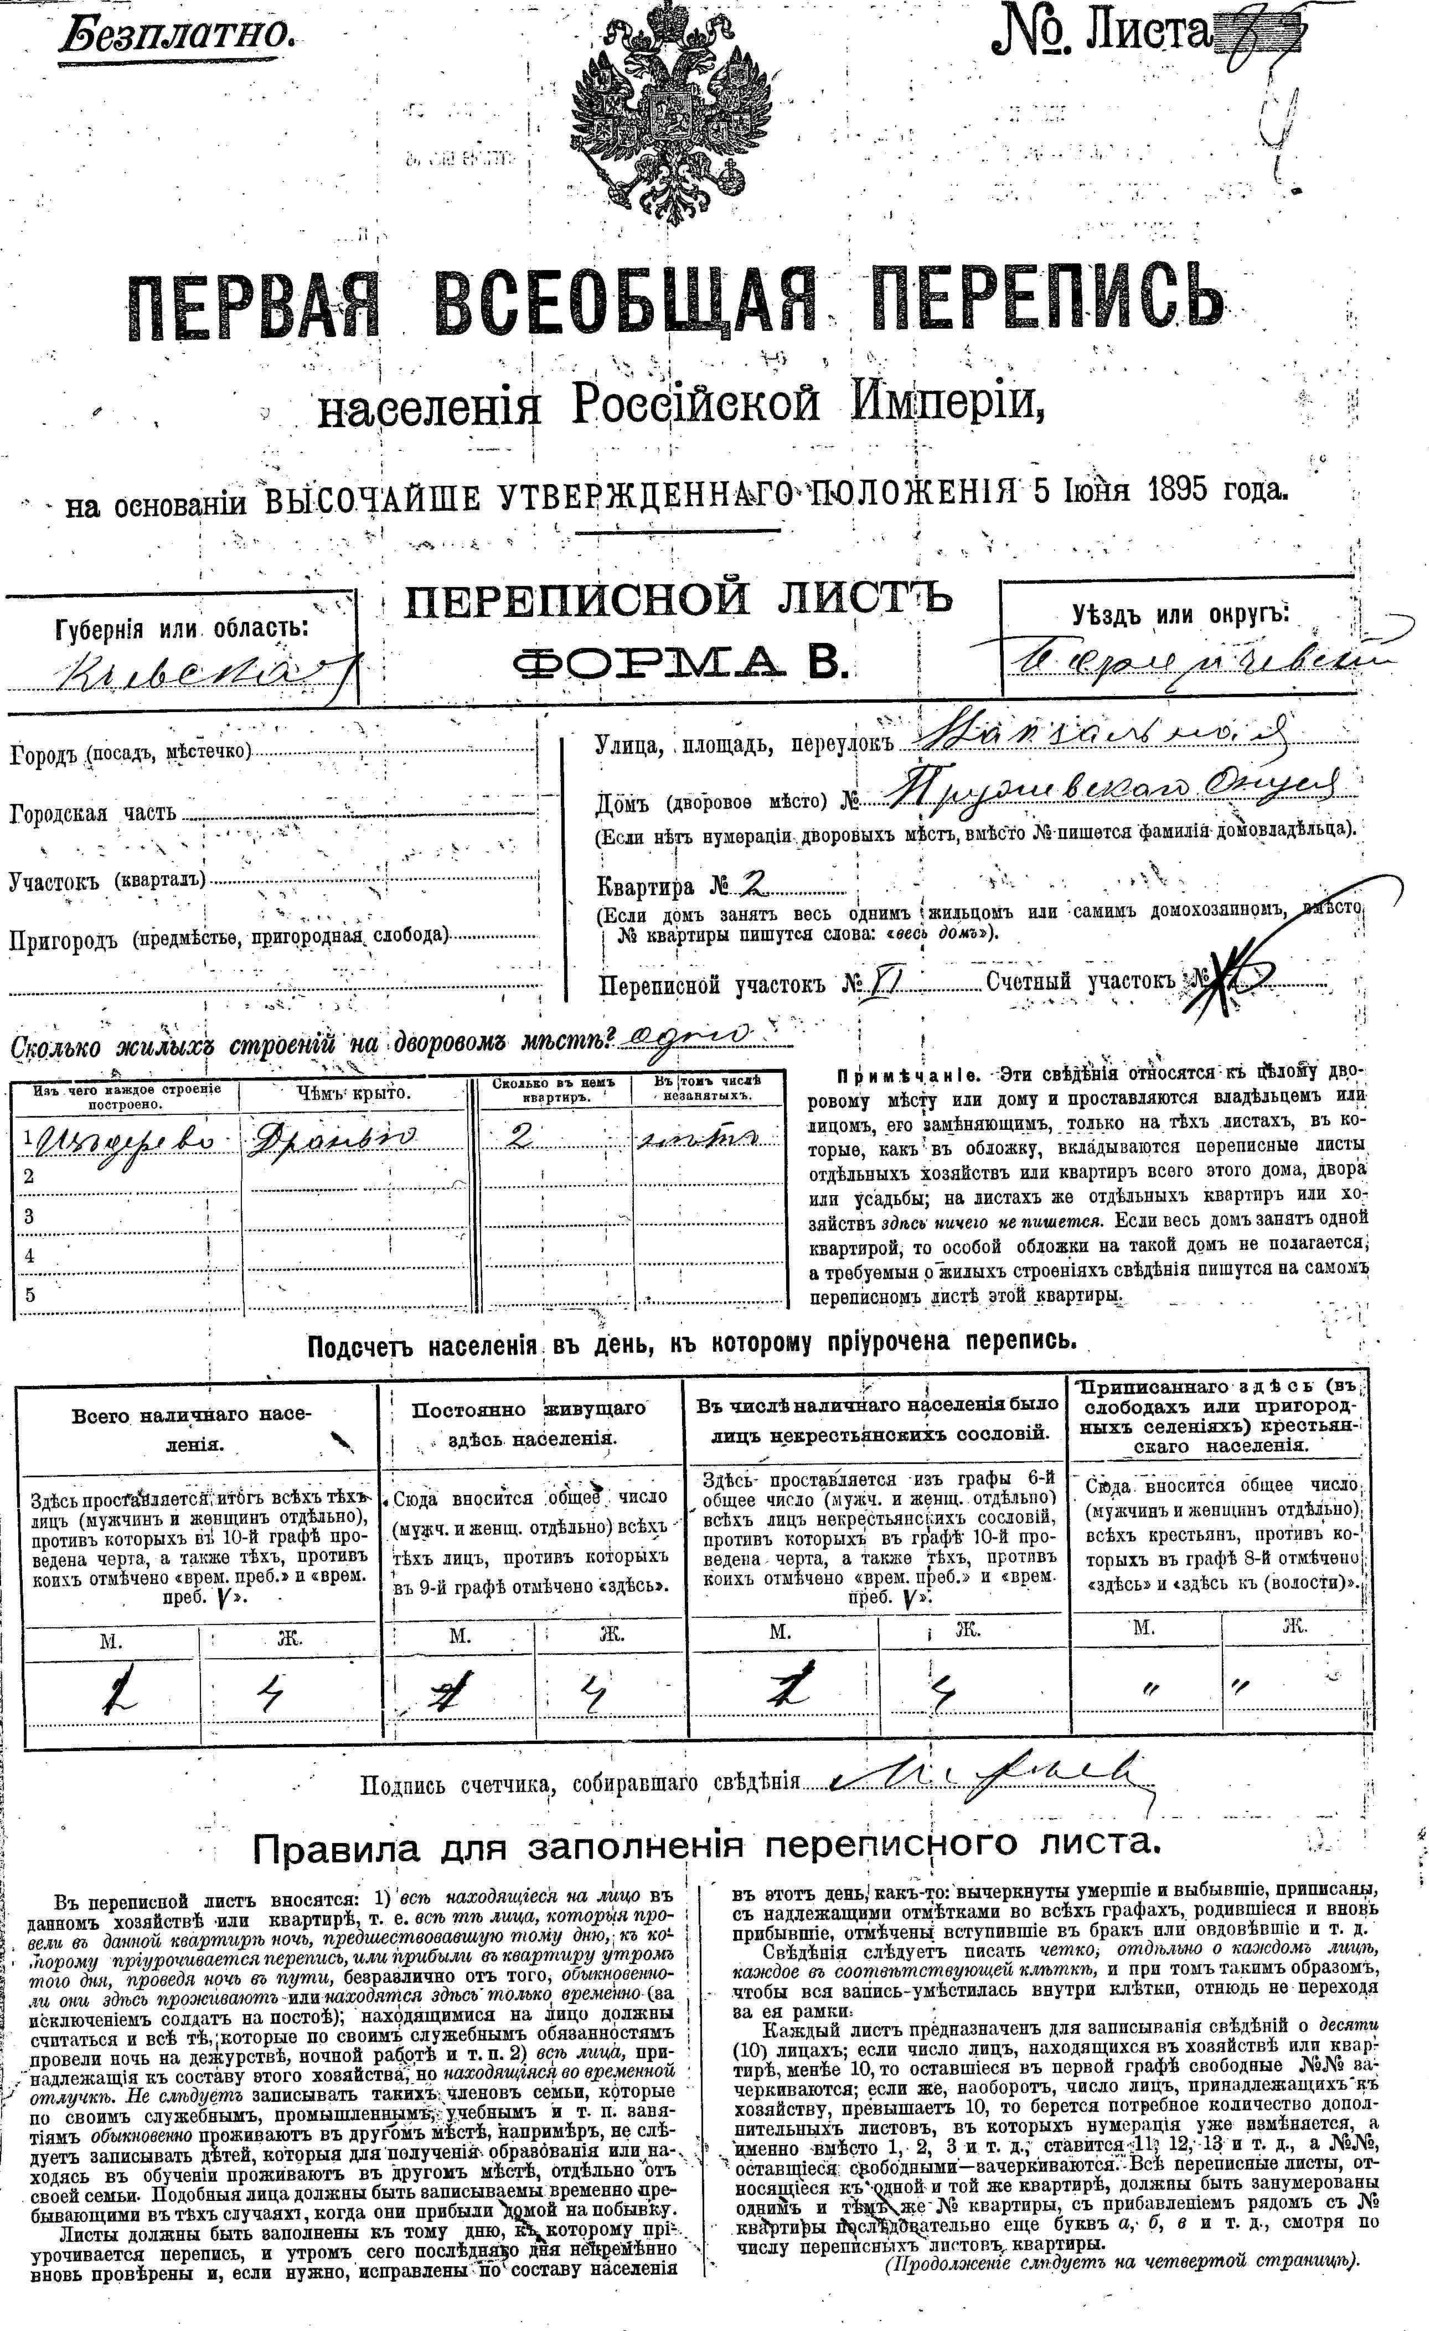 Безплатно.
№. Листа
ПЕРВАЯ ВСЕОБЩАЯ ПЕРЕПИСЬ
населенія Россійской Имперіи,
на основаніи ВЫСОЧАЙШЕ УТВЕРЖДЕННАГО ПОЛОЖЕНІЯ 5 Іюня 1895 года.
Губернія или область:
Кіевская
ПЕРЕПИСНОЙ ЛИСТЪ
ФОРМА В.
Уѣздъ или округъ:
Бердичевскій
Городъ (посадъ, мѣстечко)
Городская часть
Участокъ (кварталъ)
Пригородъ (предмѣстье, пригородная слобода)
Улица, площадь, переулокъ
Домъ (дворовое мѣсто) №
(Если нѣтъ нумераціи дворовыхъ мѣстъ, вмѣсто № пишется фамилія домовладѣльца).
Квартира № 2
(Если домъ занятъ весь однимъ жильцомъ или самимъ домохозяиномъ, вмѣсто
№ квартиры пишутся слова: «весь домъ»).
Переписной участокъ № VI Счетный участокъ №
Сколько жилыхъ строеній на дворовомъ мѣстѣ? одно
Изъ чего каждое строеніе построено.
Чѣмъ крыто.
Сколько въ немъ квартиръ.
Въ томъ числѣ незанятыхъ.
1 Изъ дерева Дранью 2 нѣтъ
2
3
4
5
Примѣчаніе. Эти свѣдѣнія относятся къ цѣлому дво-
ровому мѣсту или дому и проставляются владѣльцемъ или
лицомъ, его замѣняющимъ, только на тѣхъ листахъ, въ ко-
торые, какъ въ обложку, вкладываются переписные листы
отдѣльныхъ хозяйствъ или квартиръ всего этого дома, двора
или усадьбы; на листахъ же отдѣльныхъ квартиръ или хо-
зяйствъ здѣсь ничего не пишется. Если весь домъ занятъ одной
квартирой, то особой обложки на такой домъ не полагается,
а требуемыя о жилыхъ строеніяхъ свѣдѣнія пишутся на самомъ
переписномъ листѣ этой квартиры.
Подсчетъ населенія въ день, къ которому пріурочена перепись.
Всего наличнаго насе-
ленія.
Здѣсь проставляется итогъ всѣхъ тѣхъ
лицъ (мужчинъ и женщинъ отдѣльно),
противъ которыхъ въ 10-й графѣ про-
ведена черта, а также тѣхъ, противъ
коихъ отмѣчено «врем. преб.» и «врем.
преб. V».
Постоянно живущаго
здѣсь населенія.
Сюда вносится общее число
(мужч. и женщ. отдѣльно) всѣхъ
тѣхъ лицъ, противъ которыхъ
въ 9-й графѣ отмѣчено «здѣсь».
Въ числѣ наличнаго населенія было
лицъ некрестьянскихъ сословій.
Здѣсь проставляется изъ графы 6-й
общее число (мужч. и женщ. отдѣльно)
всѣхъ лицъ некрестьянскихъ сословій,
противъ которыхъ въ графѣ 10-й про-
ведена черта, а также тѣхъ, противъ
коихъ отмѣчено «врем. преб.» и «врем.
преб. V».
Приписаннаго здѣсь (въ
слободахъ или пригород-
ныхъ селеніяхъ) крестьян-
скаго населенія.
Сюда вносится общее число
(мужчинъ и женщинъ отдѣльно)
всѣхъ крестьянъ, противъ ко-
торыхъ въ графѣ 8-й отмѣчено
«здѣсь» и «здѣсь къ (волости)».
М. Ж. М. Ж. М. Ж. М. Ж.
4 4 4 " "
Подпись счетчика, собиравшаго свѣдѣнія
Правила для заполненія переписного листа.
Въ переписной листъ вносятся: 1) всѣ находящіеся на лицо въ
данномъ хозяйствѣ или квартирѣ, т. е. всѣ тѣ лица, которыя про-
вели въ данной квартирѣ ночь, предшествовавшую тому дню, къ ко-
торому пріурочивается перепись, или прибыли въ квартиру утромъ
того дня, проведя ночь въ пути, безразлично отъ того, обыкновенно-
ли они здѣсь проживаютъ или находятся здѣсь только временно (за
исключеніемъ солдатъ на постоѣ); находящимися на лицо должны
считаться и всѣ тѣ, которые по своимъ служебнымъ обязанностямъ
провели ночь на дежурствѣ, ночной работѣ и т. п. 2) всѣ лица, при-
надлежащія къ составу этого хозяйства, но находящіяся во временной
отлучкѣ. Не слѣдуетъ записывать такихъ членовъ семьи, которые
по своимъ служебнымъ, промышленнымъ, учебнымъ и т. п. заня-
тіямъ обыкновенно проживаютъ въ другомъ мѣстѣ, напримѣръ, не слѣ-
дуетъ записывать дѣтей, которыя для полученія образованія или на-
ходясь въ обученіи проживаютъ въ другомъ мѣстѣ, отдѣльно отъ
своей семьи. Подобныя лица должны быть записываемы временно пре-
бывающими въ тѣхъ случаяхъ, когда они прибыли домой на побывку.
Листы должны быть заполнены къ тому дню, къ которому прі-
урочивается перепись, и утромъ сего послѣдняго дня непремѣнно
вновь провѣрены и, если нужно, исправлены по составу населенія
въ этотъ день, какъ-то: вычеркнуты умершіе и выбывшіе, приписаны,
съ надлежащими отмѣтками во всѣхъ графахъ, родившіеся и вновь
прибывшіе, отмѣчены вступившіе въ бракъ или овдовѣвшіе и т. д.
Свѣдѣнія слѣдуетъ писать четко, отдѣльно о каждомъ лицѣ,
каждое въ соотвѣтствующей клѣткѣ, и при томъ такимъ образомъ,
чтобы вся запись умѣстилась внутри клѣтки, отнюдь не переходя
за ея рамки.
Каждый листъ предназначенъ для записыванія свѣдѣній о десяти
(10) лицахъ; если число лицъ, находящихся въ хозяйствѣ или квар-
тирѣ, менѣе 10, то оставшіеся въ первой графѣ свободные №№ за-
черкиваются; если же, наоборотъ, число лицъ, принадлежащихъ къ
хозяйству, превышаетъ 10, то берется потребное количество допол-
нительныхъ листовъ, въ которыхъ нумерація уже измѣняется, а
именно вмѣсто 1, 2, 3 и т. д., ставится 11, 12, 13 и т. д., а №№,
оставшіеся свободными—зачеркиваются. Всѣ переписные листы, от-
носящіеся къ одной и той же квартирѣ, должны быть занумерованы
однимъ и тѣмъ же № квартиры, съ прибавленіемъ рядомъ съ №
квартиры послѣдовательно еще буквъ а, б, в и т. д., смотря по
числу переписныхъ листовъ квартиры.
(Продолженіе слѣдуетъ на четвертой страницѣ).